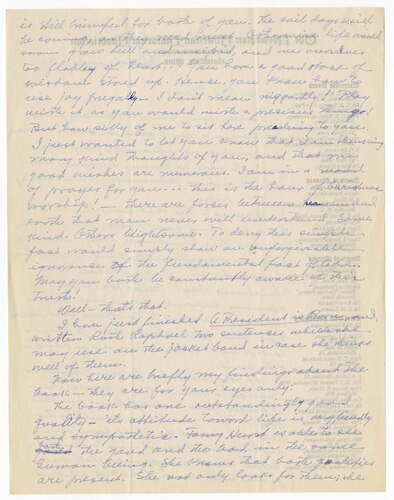 is still bountiful for both of you. The evil days will
be coming - they must. Otherwise life would
soon grow dull and and we ourselves
too flabby of heart. You have a good stock of
wisdom stored up. Hence, you know how to
use joy frugally - I don't mean niggardly. They
waste it as you would waste a precious thing.
But how silly of me to sit here preaching to you.
I just wanted to let you know that I am thinking
many kind thoughts of you, and that my
good wishes are numerous. I am in a mood
of prayer for you ... This is the hour of
worship! - There are forces between man and
earth that man never will understand. Some
kind. Others blightsome. To deny this simple
fact would simply show an unforgivable
ignorance of the fundamental fact of life.
May you both be constantly aware of this
truth.
Well - that's that.
I have just finished A President is Born, and
written Ruth Raphael two sentences which she
may use on the jacket band in case she thinks
well of them.
Now here are briefly my findings about the
book - they are for your eyes only:
The book has one outstandingly good
quality - its attitude toward life is very friendly
and sympathetic. Fanny Hurst is able to see
the good and the bad in the same
human being. She knows that both qualities
are present. She not only looks for them, she